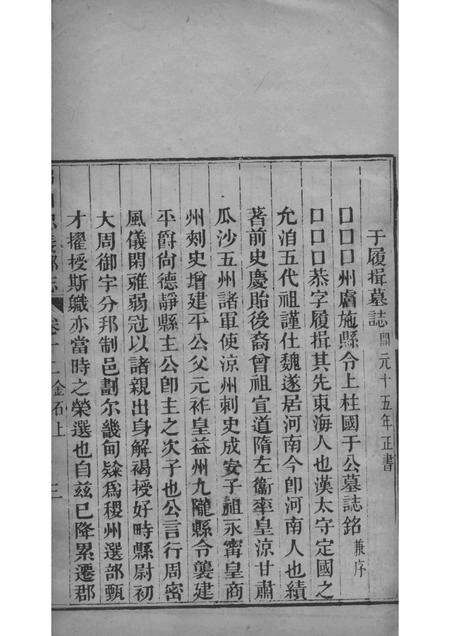 于履揖墓誌開元十五年正書
口口口州膚施縣令上柱國于公墓誌銘兼序
口口口恭字履揖其先東海人也漢太守定國之
允洎五代祖謹仕魏遂居河南今卽河南人也績
著前史慶胎後裔曾祖宣道隋左衞率皇涼甘肅
瓜沙五州諸軍使涼州刺史成安子祖永甯皇商
州刺史增建平公父元祚皇益州九隴縣令襲建
平爵尚德靜縣主公卽主之次子也公言行周密
風儀閑雅弱冠以諸親出身解褐授好畤縣尉初
大周御宇分邦制邑劃尔畿甸爲稷州選部甄
才擢授斯職亦當時之榮選也自茲已降累遷郡
卷十二金石上
三